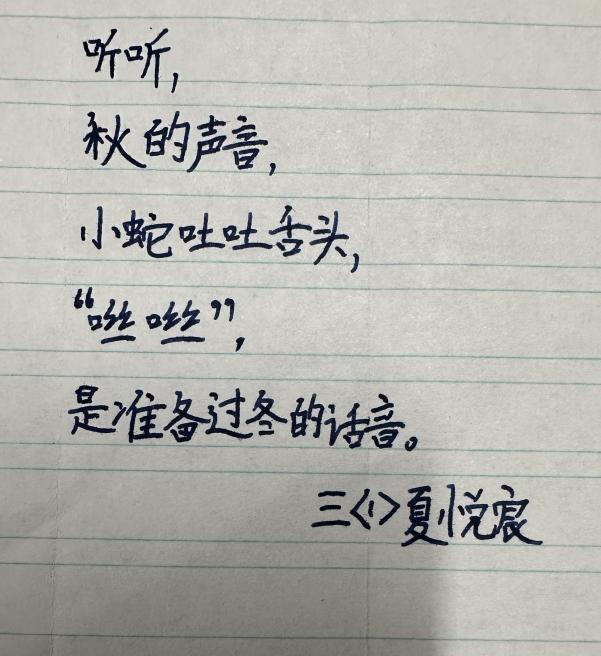 听听,
秋的声音,
小蛇吐吐舌头,
“咝咝”,
是准备过冬的话音。
三<1>夏悦宸